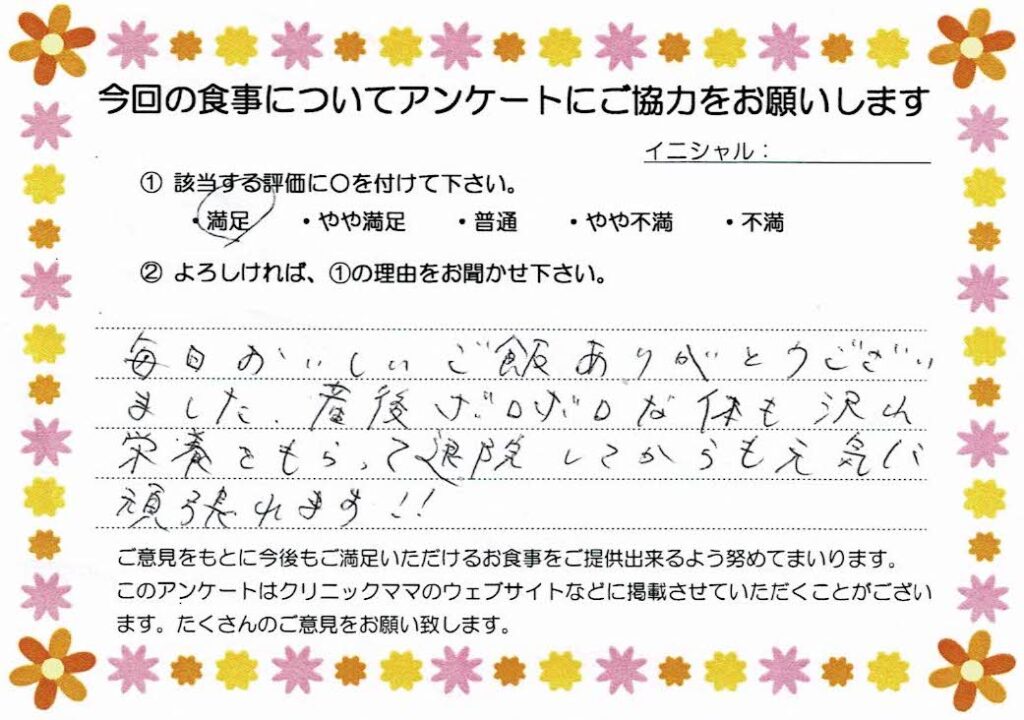 今回の食事についてアンケートにご協力をお願いします
イニシャル：
① 該当する評価に〇を付けて下さい。
・満足 ・やや満足 ・普通 ・やや不満 ・不満
② よろしければ、①の理由をお聞かせ下さい。
毎日おいしいご飯ありがとうござい
ました。産後ボロボロな体も沢山
栄養をもらって退院してからも元気に
頑張れます!!
ご意見をもとに今後もご満足いただけるお食事をご提供出来るよう努めてまいります。
このアンケートはクリニックママのウェブサイトなどに掲載させていただくことがござい
ます。たくさんのご意見をお願い致します。